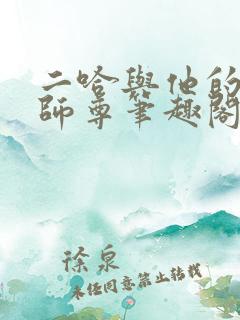 二哈與他的
師尊筆趣閣
徐泉
未经同意禁止转载